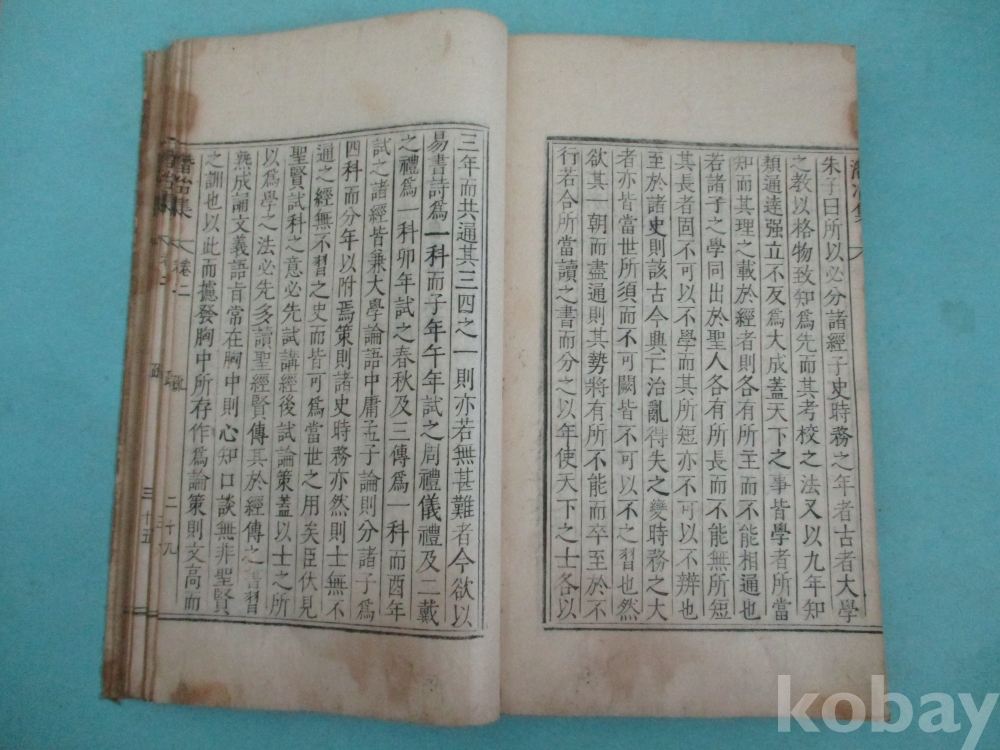 朱子曰所以必分諸經子史時務之年者古者大學
之教以格物致知爲先而其考校之法又以九年知
類通達强立不反爲大成蓋天下之事皆學者所當
知而其理之載於經者則各有所主而不能相通也
若諸子之學同出於聖人各有所長而不能無所短
其長者固不可以不學而其所短亦不可以不辨也
至於諸史則該古今興亡治亂得失之變時務之大
者亦皆當世所須而不可闕皆不可以不之習也然
欲其一朝而盡通則其勢將有所不能而卒至於不
行若合所當讀之書而分之以年使天下之士各以
三年而共通其三四之一則亦若無甚難者今欲以
易書詩爲一科而子年午年試之周禮儀禮及二戴
之禮爲一科卯年試之春秋及三傳爲一科而酉年
試之諸經皆兼大學論語中庸孟子論則分諸子爲
四科而分年以附焉策則諸史時務亦然則士無不
通之經無不習之史而皆可爲當世之用矣臣伏見
聖賢試科之意必先試講經後試論策蓋以士之所
以爲學之法必先多讀聖經賢傳其於經傳之習
熟成誦文義語旨常在胸中則心知口談無非聖賢
之訓也以此而攄發胸中所存作爲論策則文高而
潛冶集
卷二
二十九
三十五
kobay